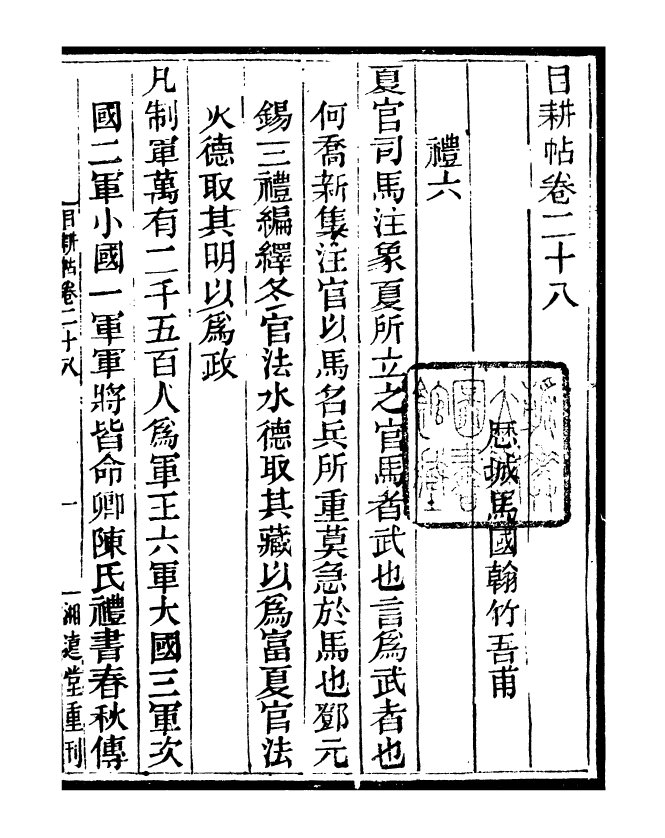 目耕帖卷二十八
歷城馬國翰竹吾甫
禮六
夏官司馬注象夏所立之官馬者武也言爲武者也
何喬新集注官以馬名兵所重莫急於馬也鄧元
錫三禮編繹冬官法水德取其藏以爲富夏官法
火德取其明以爲政
凡制軍萬有二千五百人爲軍王六軍大國三軍次
國二軍小國一軍軍將皆命卿陳氏禮書春秋傳
目耕帖卷二十八 一 湘遠堂重刊